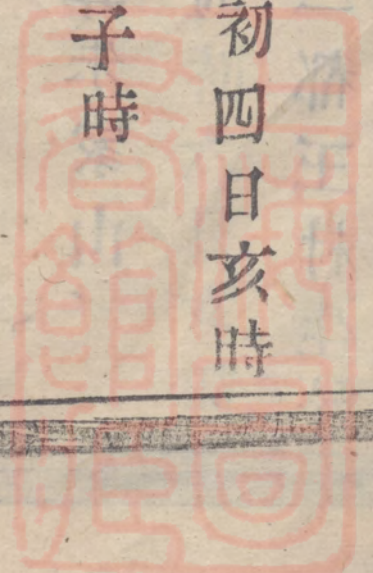 初四日亥時
子時